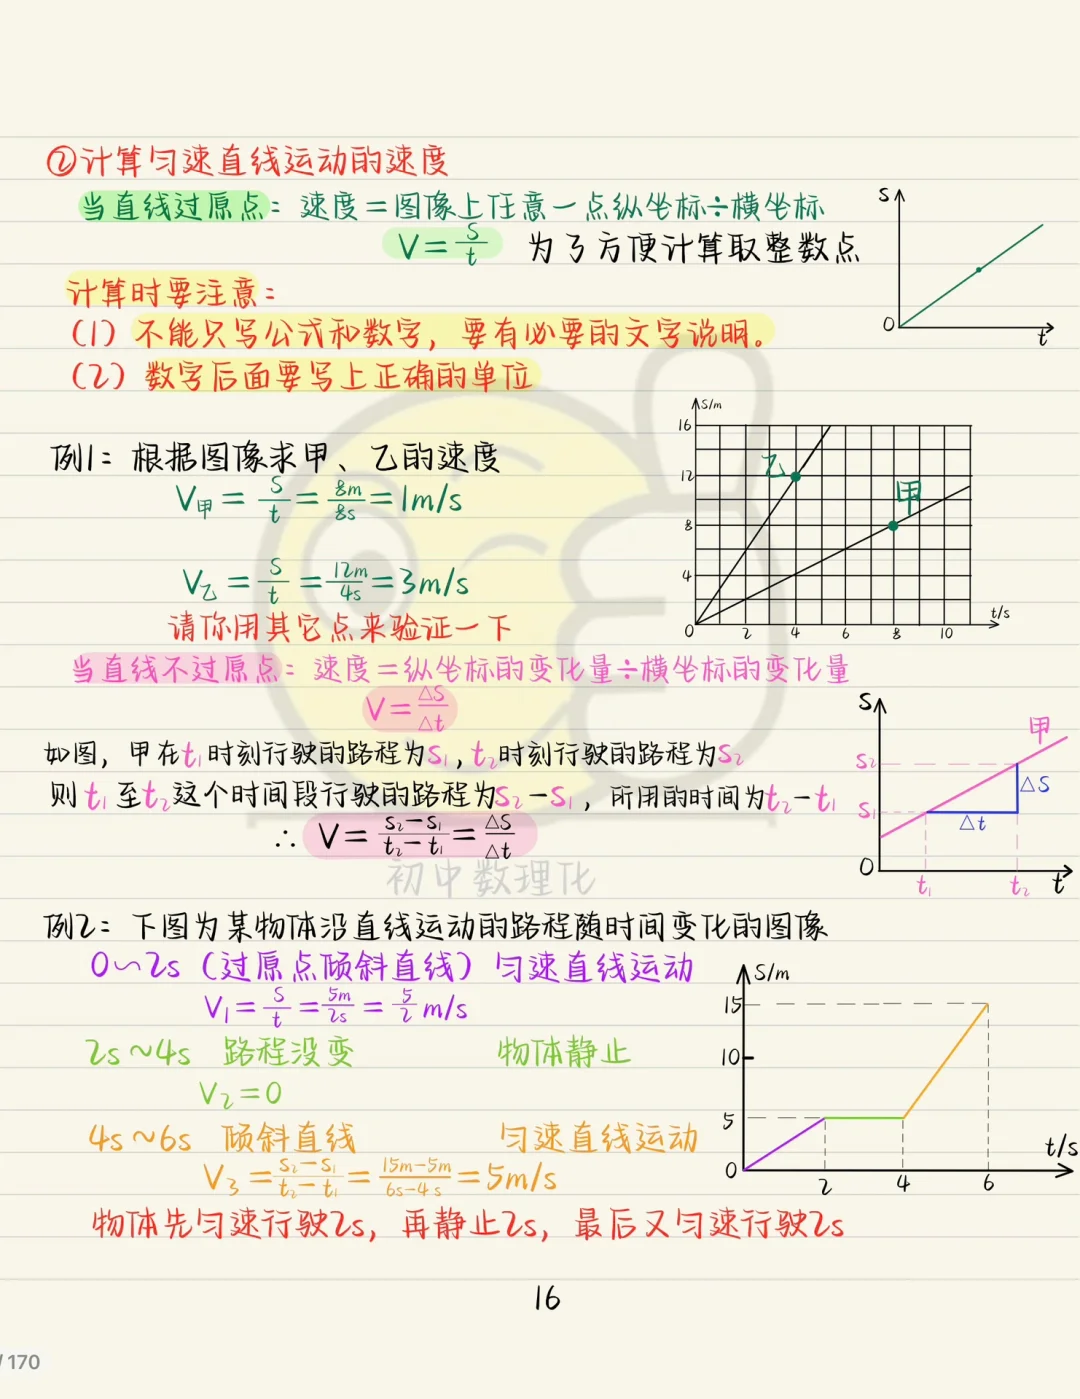 ②计算匀速直线运动的速度
当直线过原点：速度＝图像上任意一点纵坐标÷横坐标
V＝s/t 为了方便计算取整数点
S
O
t
计算时要注意：
（1）不能只写公式和数字，要有必要的文字说明。
（2）数字后面要写上正确的单位
例1：根据图像求甲、乙的速度
V甲＝s/t＝8m/8s＝1m/s
V乙＝s/t＝12m/4s＝3m/s
请你用其它点来验证一下
S/m
16
12
8
4
0
2
4
6
8
10
t/s
乙
甲
当直线不过原点：速度＝纵坐标的变化量÷横坐标的变化量
V＝△S/△t
如图，甲在t₁时刻行驶的路程为S₁，t₂时刻行驶的路程为S₂
则t₁至t₂这个时间段行驶的路程为S₂－S₁，所用的时间为t₂－t₁
∴ V＝S₂－S₁/t₂－t₁＝△S/△t
S
甲
S₂
S₁
△S
△t
O
t₁
t₂
t
初中数理化
例2：下图为某物体沿直线运动的路程随时间变化的图像
0～2s（过原点倾斜直线）匀速直线运动
V₁＝s/t＝5m/2s＝5/2 m/s
2s～4s 路程没变 物体静止
V₂＝0
4s～6s 倾斜直线 匀速直线运动
V₃＝S₂－S₁/t₂－t₁＝15m－5m/6s－4s＝5m/s
S/m
15
10
5
0
2
4
6
t/s
物体先匀速行驶2s，再静止2s，最后又匀速行驶2s
16
/ 170